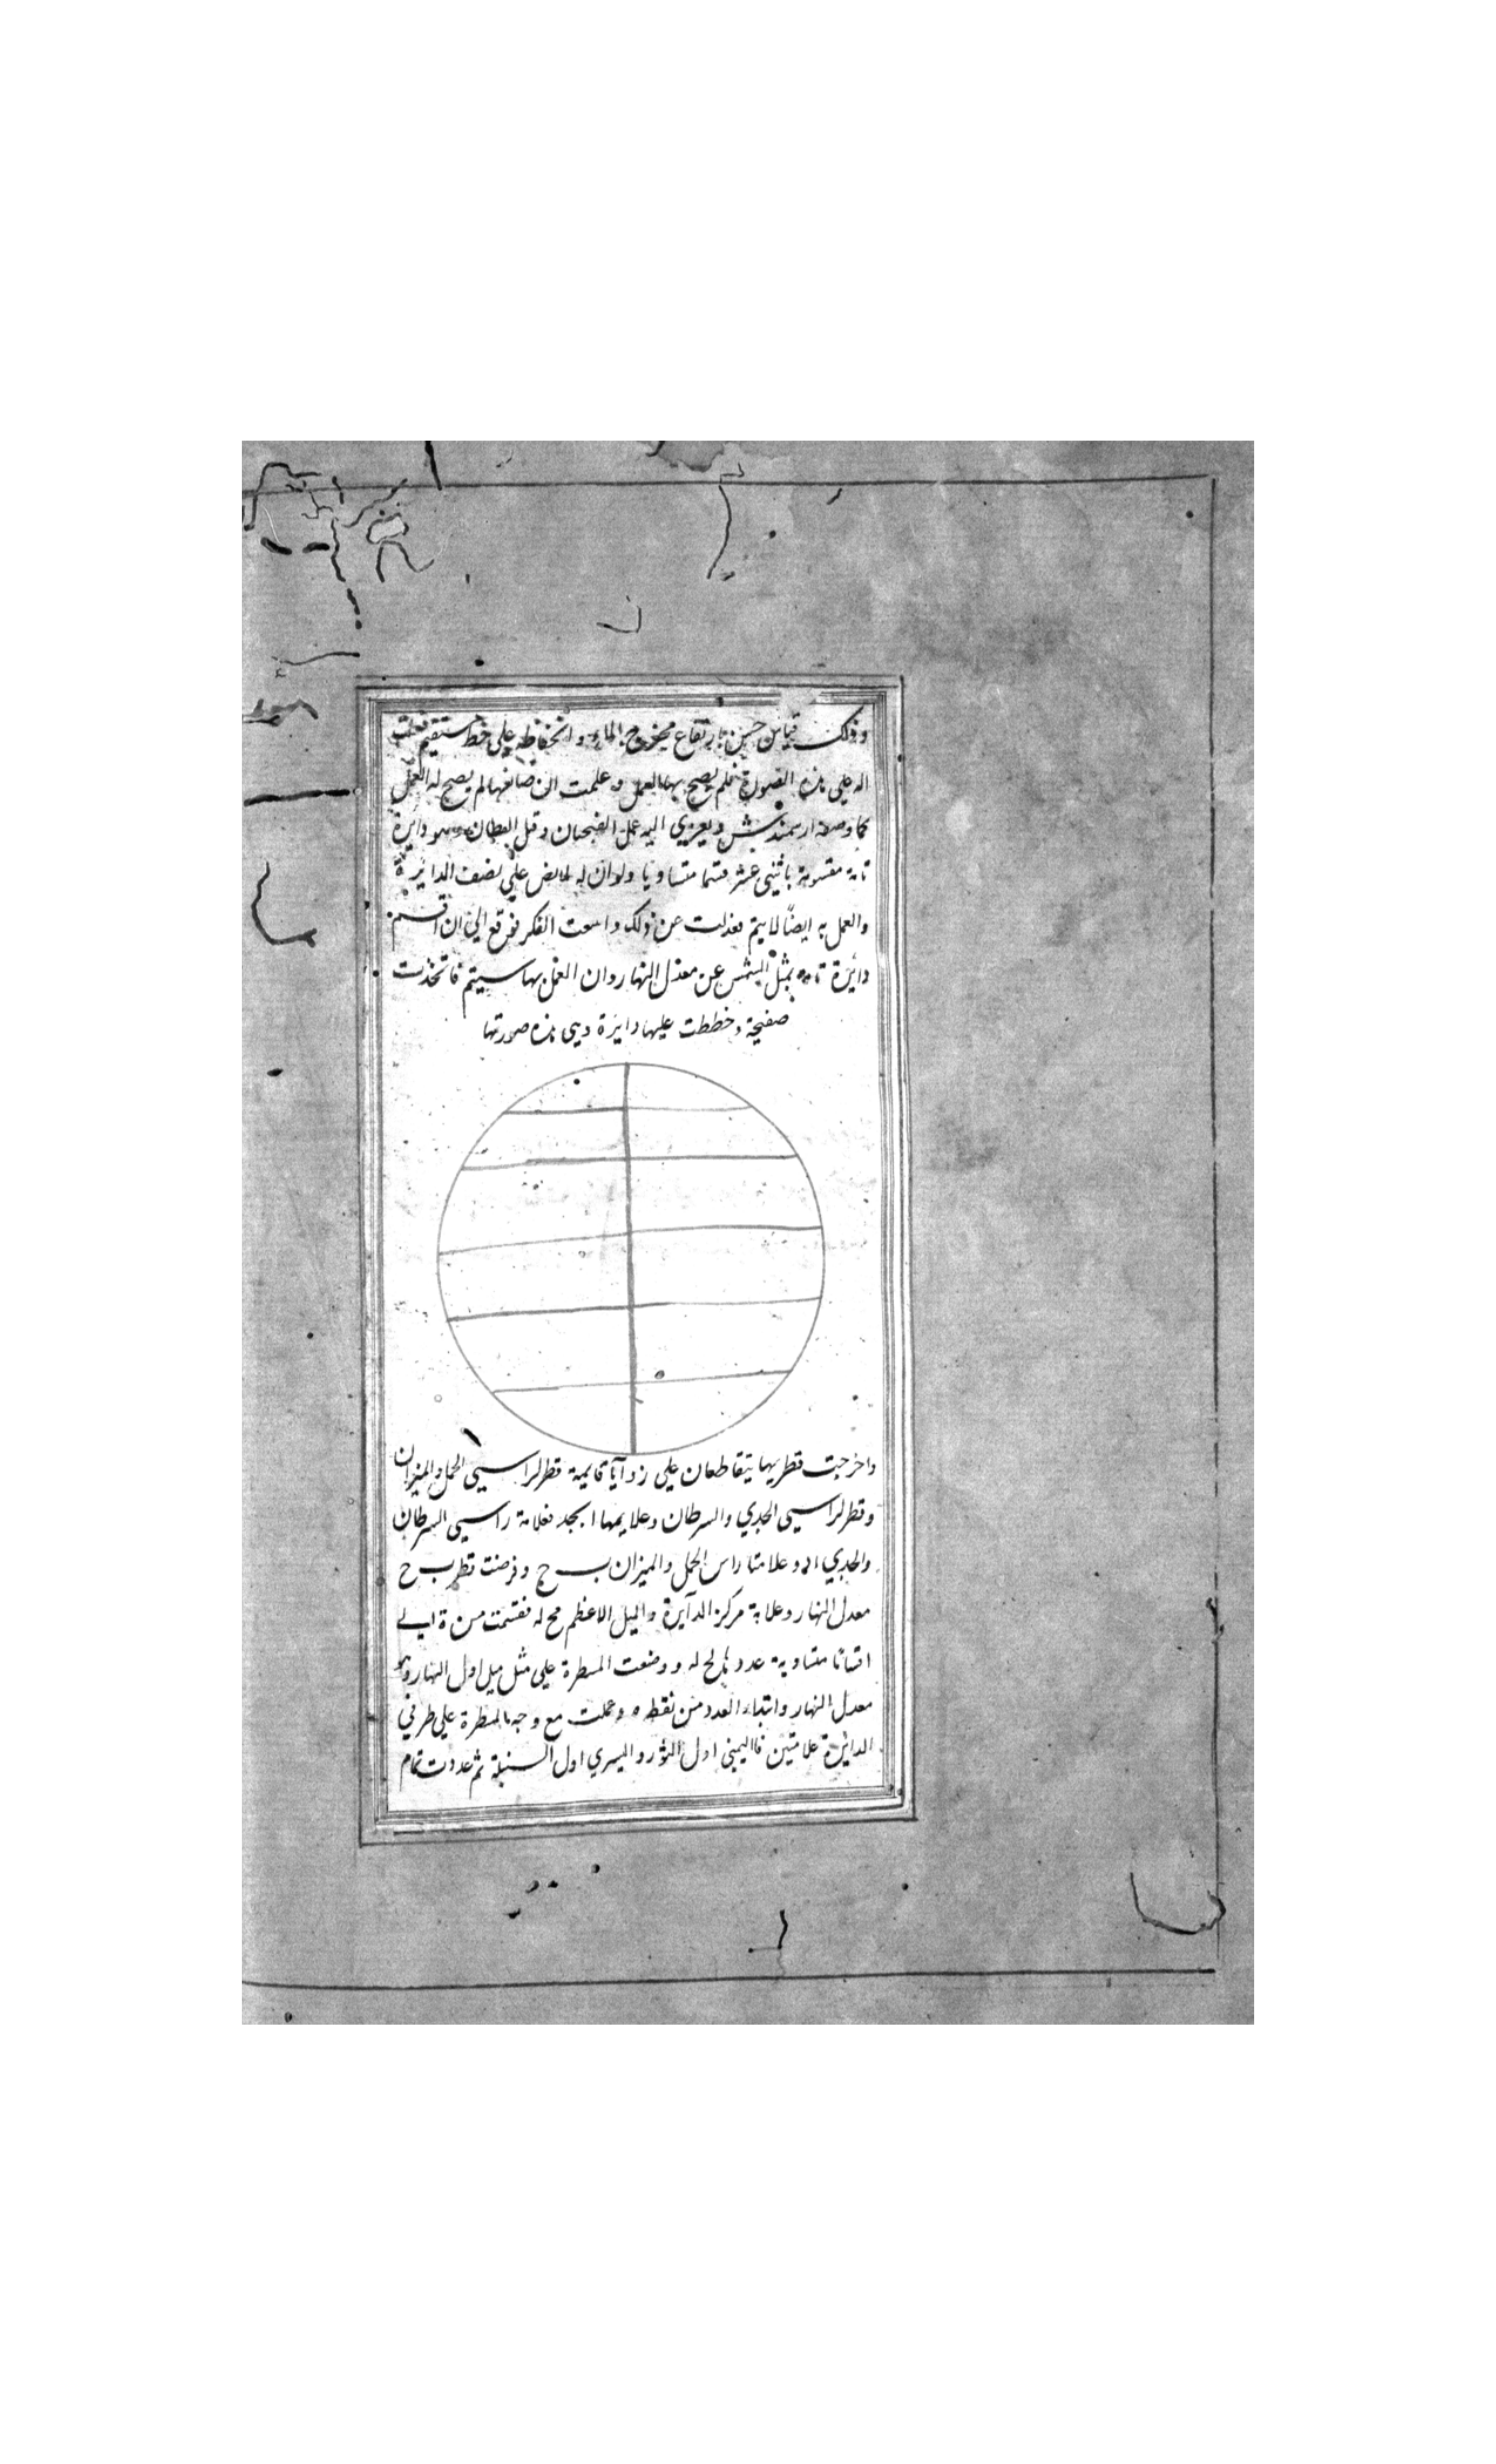 وذلك قياس حسن بارتفاع مخرج الماء وانخفاظه علي خط مستقيم فعلت
اله علي هذه الصورة فلم يصح بها العمل وعلمت ان صانعها لم يصح له العمل
كما وصفه ارسميدس ويعزي اليه عمل الفنجان وقل القطان وهو دايرة
تامة مقسومة باثنى عشر قسما متساويا ولوان له علي نصف الدايرة
والعمل به ايضًا لا يتم فعدلت عن ذلك وامعنت الفكر فوقع الي ان اقسم
دايرة تامه بمثل الشمس عن معدل النهار وان العمل بها سيتم فاتخذت
صفيحة وخططت عليها دايرة وهى هذه صورتها
واخرجت قطريها يتقاطعان علي زوآيا قايمة قطر لراسي الحمل والميزان
وقطر لراسي الجدي والسرطان وعلايمها ابجد فعلامة راسي السرطان
والجدي اد وعلامتا راس الحمل والميزان ب ج وفرضت قطر ب ج
معدل النهار وعلامة مركز الدآيرة ه والميل الاعظم كح له فقسمت من ه الي
اقسامًا متساوية عدد كح له ووضعت المسطرة علي مثل ميل اول النهار وهو
معدل النهار وابتداء العدد من نقطه ه وعملت مع وجه المسطرة علي طرفي
الدايرة علامتين فاليمنى اول الثور واليسري اول السنبلة ثم عددت تمام